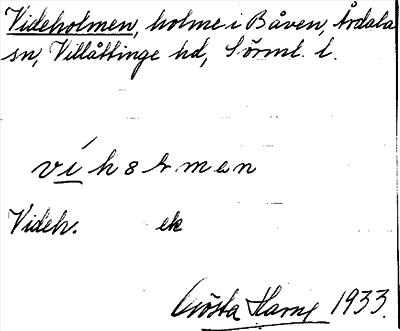 Videholmen, holme i Båven, Årdala
sn, Villåttinge hd, Sörml. l.
víholmen
Videh. ek
Gösta Hamp 1933.